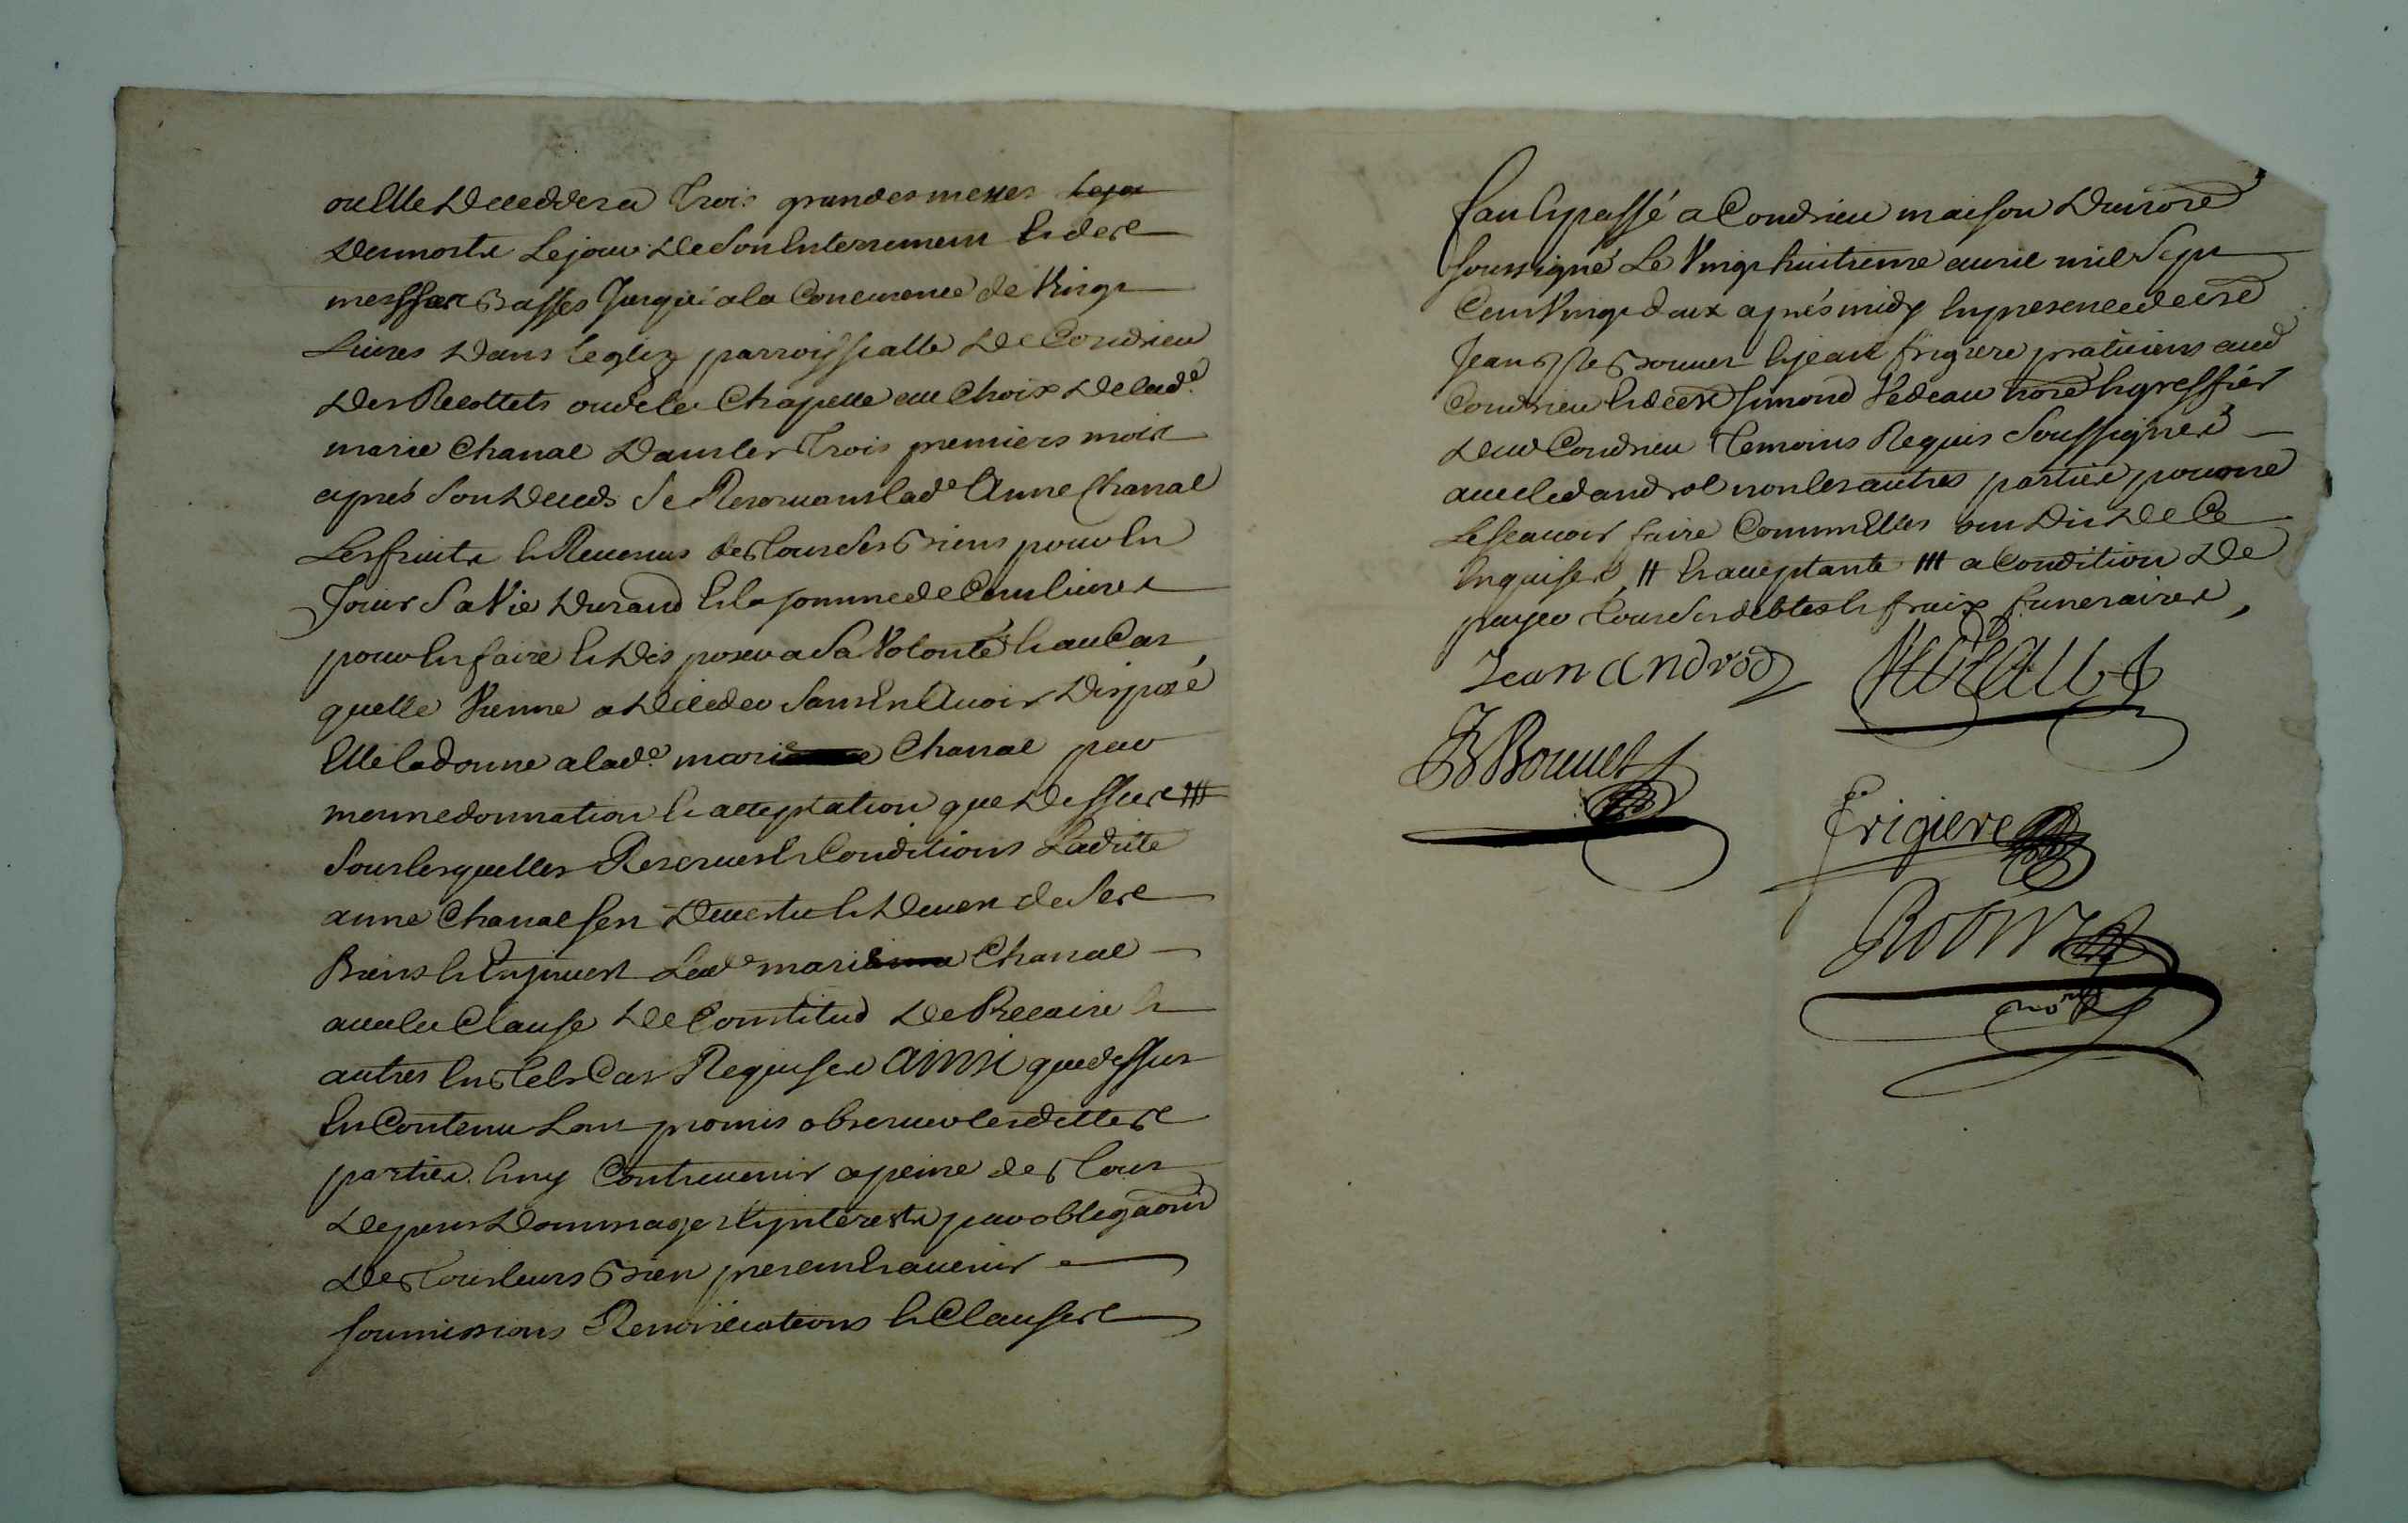 ou Elle Deceddera Trois grandes messes
Des morts Le jour De son Enterrement Et des
messes Basses Jusqu'a la Concurence de Vingt
Livres Dans leglize parroissialle De Condrieu
Des Recollets ou de la Chapelle au Choix De lad.e
marie Chanal Dans les Trois premiers mois
aprés son Deceds Se Reservant lad.e Anne Chanal
Les fruits Et Revenus de Tous ses Biens pour En
Jouir Sa Vie Durand Et la somme de Cent livres
pour En faire Et Disposer a Sa Volonté Et au Cas
quelle Vienne a Deceder Sans En Avoir Disposé
Elle la donne a lad.e marie Chanal par
mesme donnation Et acceptation que Dessus
Sous lesquelles Reserves Et Conditions Ladite
anne Chanal sen Devestu Et Devest de Ses
Biens Et En Jnvest Lad.e marie Chanal
avec la Clause De Constitud De Precaire Et
autres En Tels Cas Requises Ainsi que dessus
En Contenu Lont promis observer lesdittes
parties Et ny Contrevenir a peine de Tous
Depens Dommages Et jnterests par obligaōn
De Tous leurs Bien present Et avenir
soumissions Renonciations Et Clauses
fait Et passé a Condrieu maison Du nore
soussigné Le Vingt huitieme avril mil Sept
Cent Vingt deux aprés midy En presence de
Jean Bte Bouuet Et jean frigiere praticiens aud
Condrieu Et de Simond Vedeau nore Et greffier
dud Condrieu Temoins Requis Soussignés
avec led androl non les autres parties pour ne
Le scavoir faire Comm Elles ont Dit De Ce
Enquises # Et acceptante a Condition De
payer Tous Ses debtes Et fraix funeraires,
Jean Androl
Vedeau
JB Bouuet
Frigiere
nore